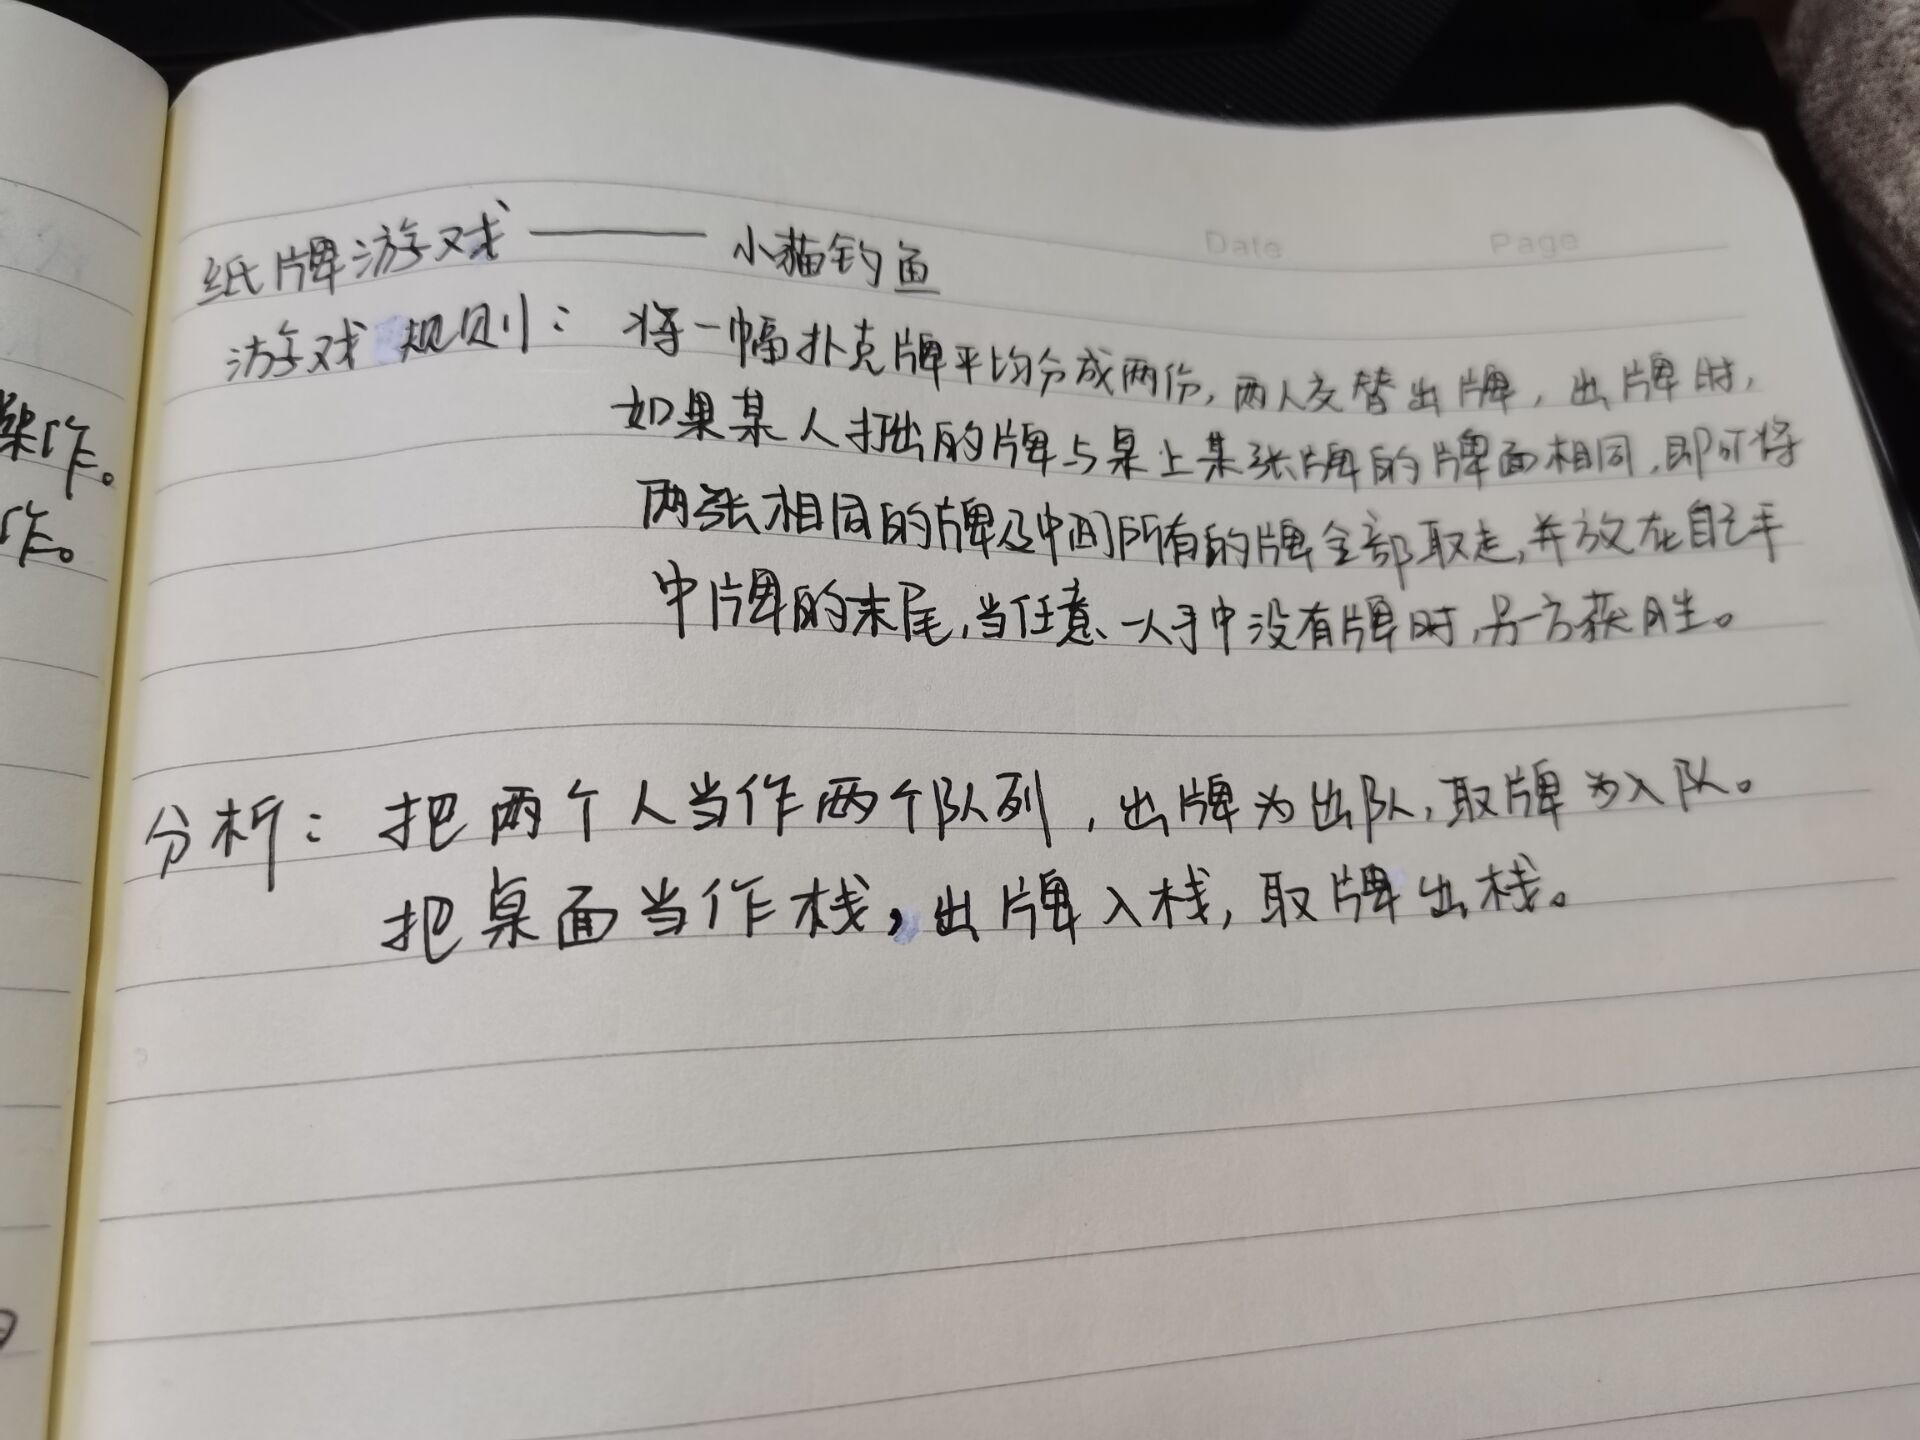 Date Page
纸牌游戏——小猫钓鱼
游戏规则：将一幅扑克牌平均分成两份，两人交替出牌，出牌时，
如果某人打出的牌与桌上某张牌的牌面相同，即可将
两张相同的牌及中间所有的牌全部取走，并放在自己手
中牌的末尾，当任意一人手中没有牌时，另一方获胜。
分析：把两个人当作两个队列，出牌为出队，取牌为入队。
把桌面当作栈，出牌入栈，取牌出栈。
作。
作。